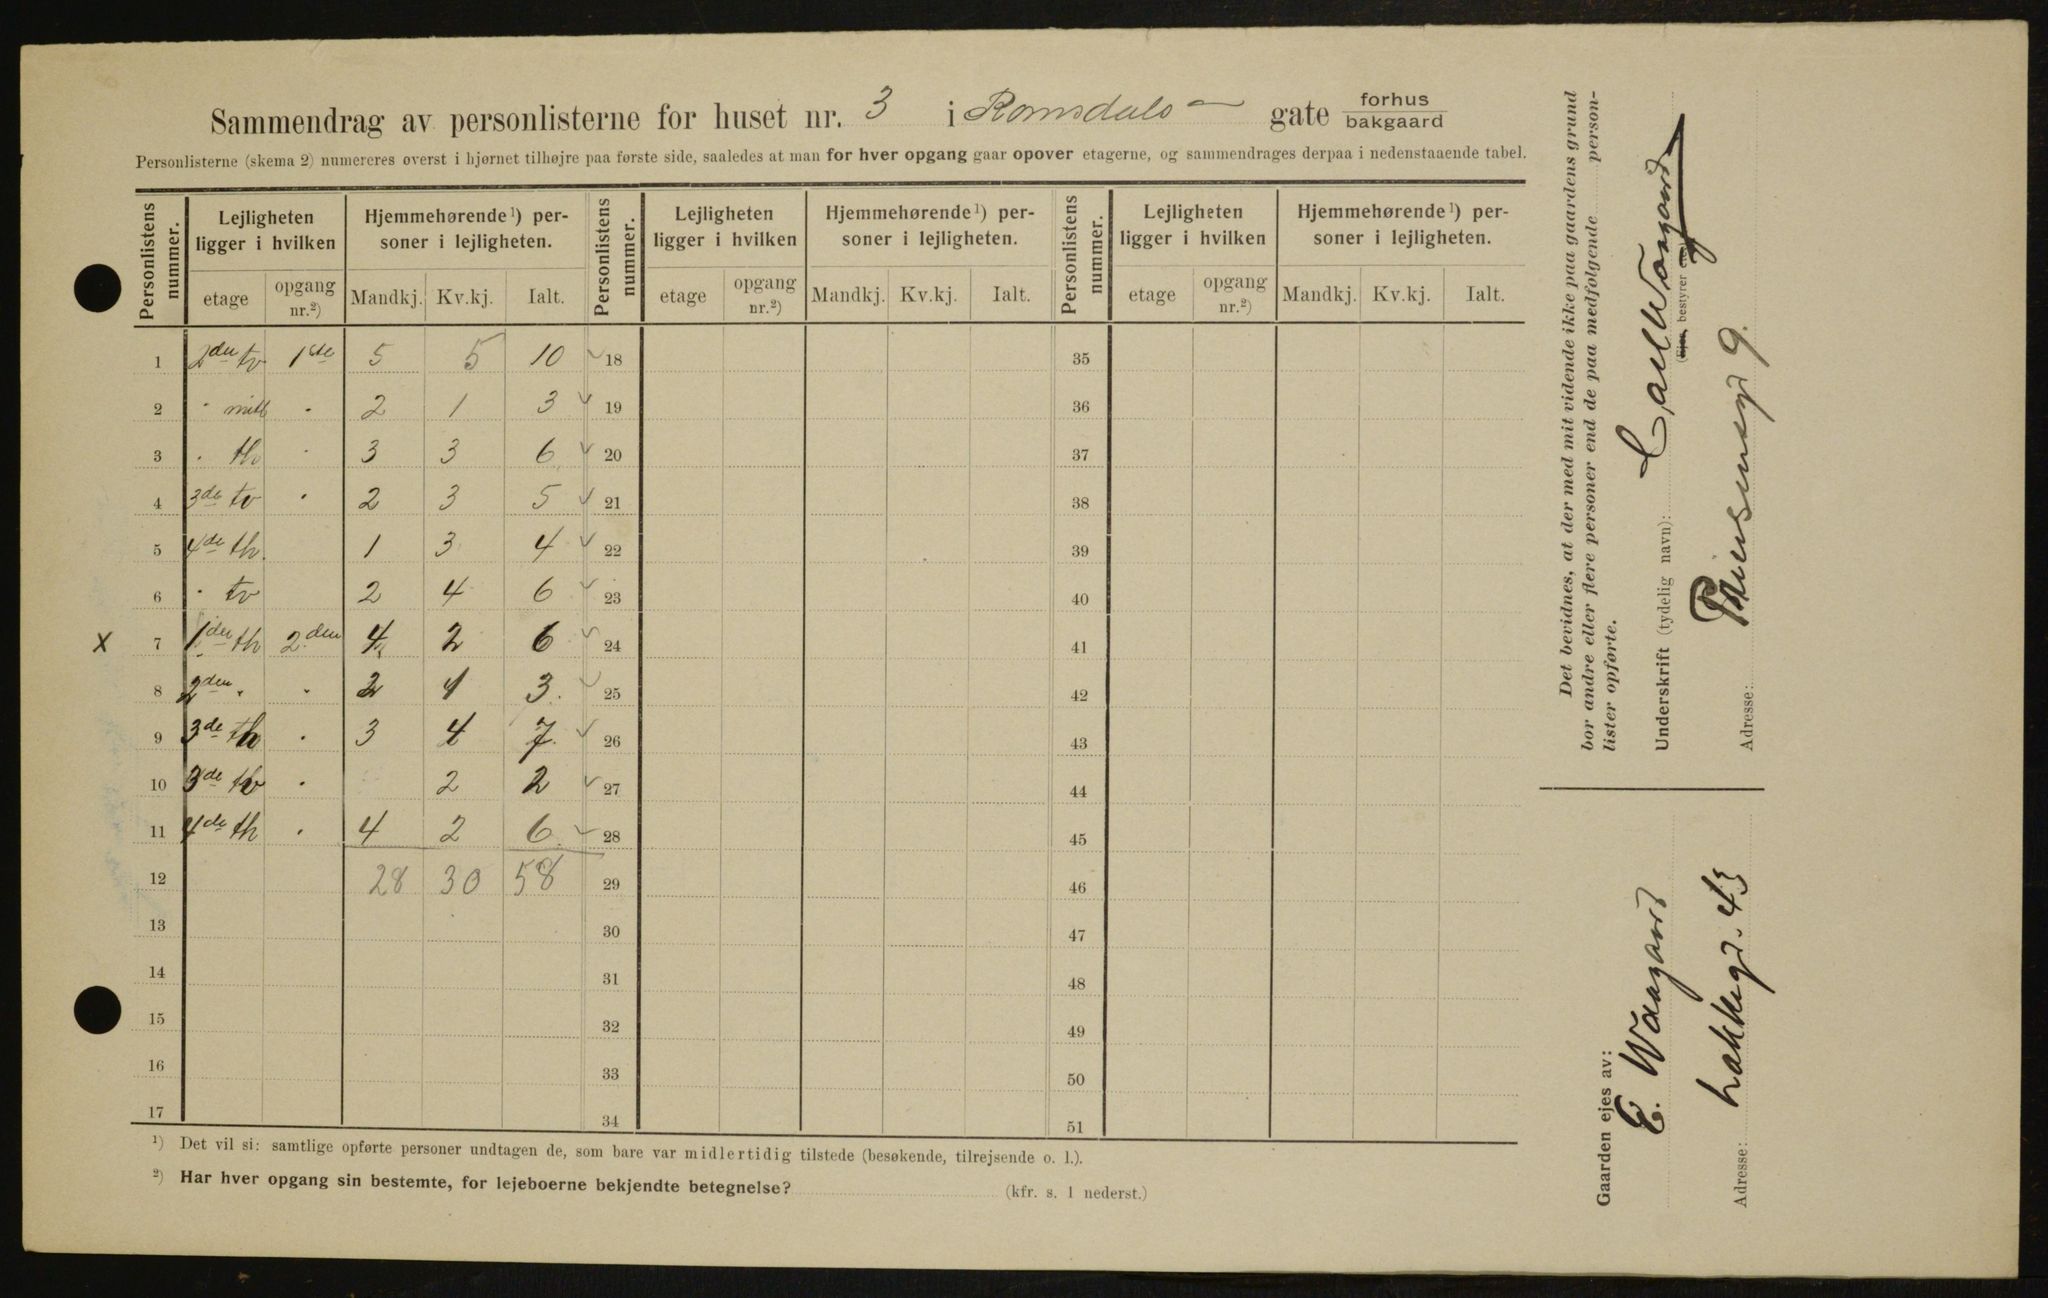 Sammendrag av personlisterne for huset nr. 3 i Romsdals gate forhus bakgaard
Personlisterne (skema 2) numereres øverst i hjørnet tilhøjre paa første side, saaledes at man for hver opgang gaar opover etagerne, og sammendrages derpaa i nedenstaaende tabel.
Personlistens nummer. Lejligheten ligger i hvilken Hjemmehørende ¹) personer i lejligheten. Personlistens nummer. Lejligheten ligger i hvilken Hjemmehørende ¹) personer i lejligheten. Personlistens nummer. Lejligheten ligger i hvilken Hjemmehørende ¹) personer i lejligheten.
etage opgang nr.²) Mandkj. Kv.kj. Ialt. etage opgang nr.²) Mandkj. Kv.kj. Ialt. etage opgang nr.²) Mandkj. Kv.kj. Ialt.
1 2den tv 1ste 5 5 10 18 35
2 " midt " 2 1 3 19 36
3 " th " 3 3 6 20 37
4 3de tv " 2 3 5 21 38
5 4de th. 1 3 4 22 39
6 " tv 2 4 6 23 40
x 7 1den th 2.den 4 2 6 24 41
8 2den " " 2 1 3. 25 42
9 3de th " 3 4 7. 26 43
10 3de " 2 2 27 44
11 4de th " 4 2 6. 28 45
12 28 30 58 29 46
13 30 47
14 31 48
15 32 49
16 33 50
17 34 51
¹) Det vil si: samtlige opførte personer undtagen de, som bare var midlertidig tilstede (besøkende, tilrejsende o. l.).
²) Har hver opgang sin bestemte, for lejeboerne bekjendte betegnelse? (kfr. s. 1 nederst.)
Det bevidnes, at der med mit vidende ikke paa gaardens grund
bor andre eller flere personer end de paa medfølgende personlister opførte.
Underskrift (tydelig navn): Carl Waagaard
(Ejer, bestyrer etc.)
Adresse: 9.
Gaarden ejes av:
E. Waagaard
Adresse: Lakkegd. 43